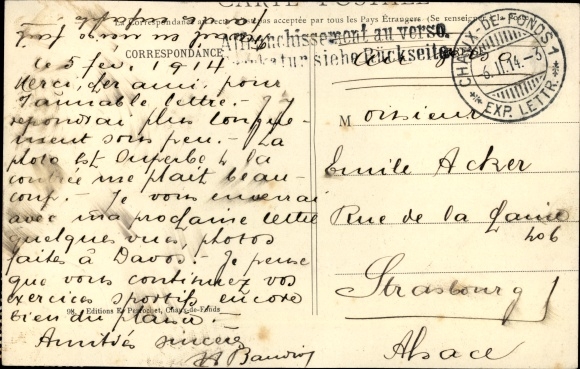 CARTE POSTALE
La Correspondance au recto n'est pas acceptée par tous les Pays Etrangers (Se renseigner à la Poste)
CORRESPONDANCE
Affranchissement au verso.
Frankatur siehe Rückseite.
CHAUX-DE-FONDS 1
6. II. 14. - 3
EXP. LETTR.
ce 5 fev. 1914
Merci, cher ami, pour
l'aimable lettre. - J'y
répondrai plus longue-
ment sous peu. - La
photo est superbe & la
contrée me plaît beau-
coup. - Je vous enverrai
avec ma prochaine lettre
quelques vues, photos
faites à Davos. - Je pense
que vous continuez vos
exercices sportifs encore
bien du plaisir. -
Amitiés sincères
Monsieur
Emile Acker
Rue de la
Strasbourg
Alsace
98. Editions E. Perrochet, Chaux-de-Fonds